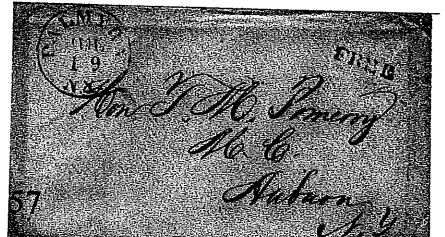 PALMYRA
JUL
19
N.Y.
FREE
Hon T. M. Pomeroy
M. C.
Auburn
N. Y.
57